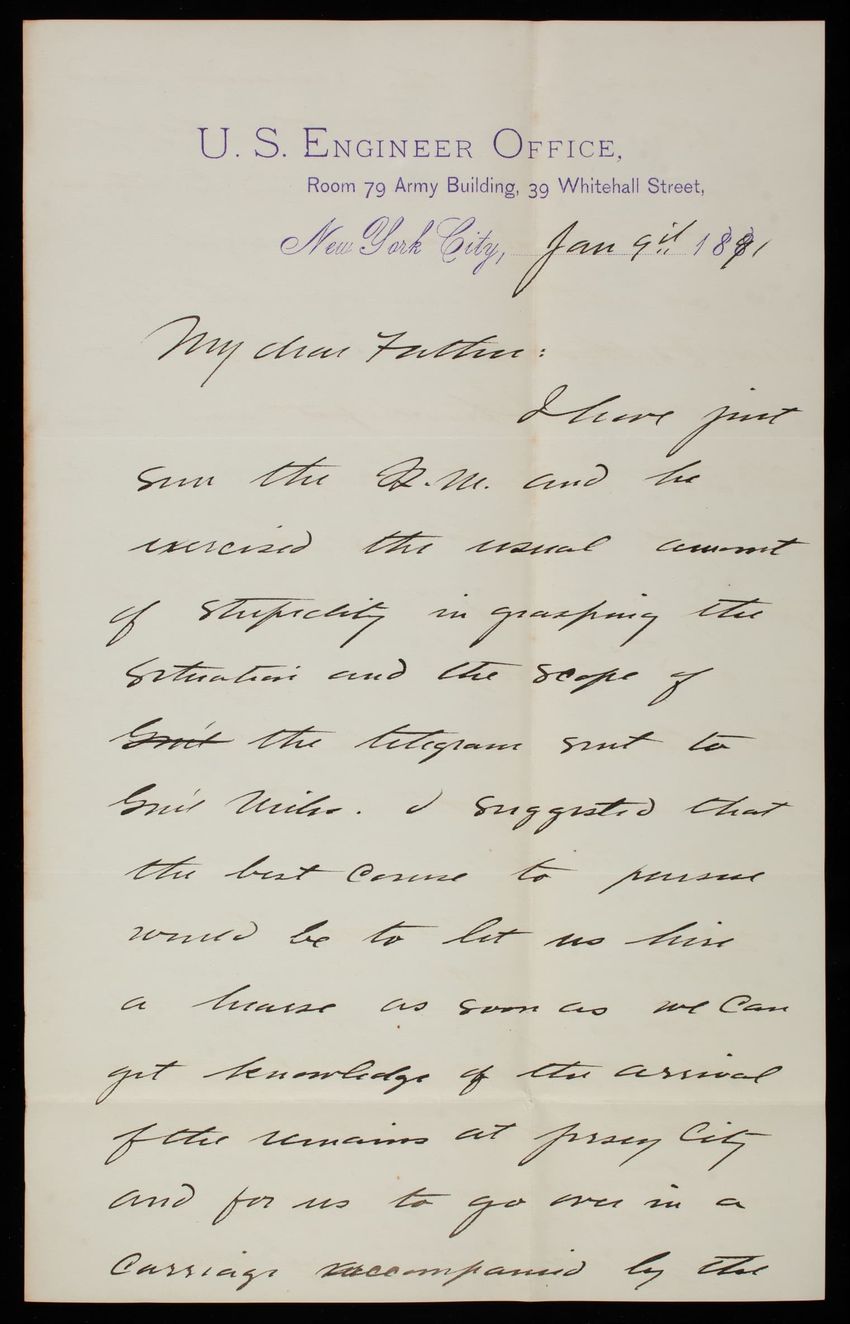 U. S. ENGINEER OFFICE,
Room 79 Army Building, 39 Whitehall Street,
New York City, Jan 9th 1891
My dear Father:
I have just
seen the Q.M. and he
exercised the usual amount
of stupidity in grasping the
situation and the scope of
Gen'l the telegram sent to
Gen'l Miles. I suggested that
the best course to pursue
would be to let us hire
a hearse as soon as we can
get knowledge of the arrival
of the remains at Jersey City
and for us to go over in a
carriage accompanied by the